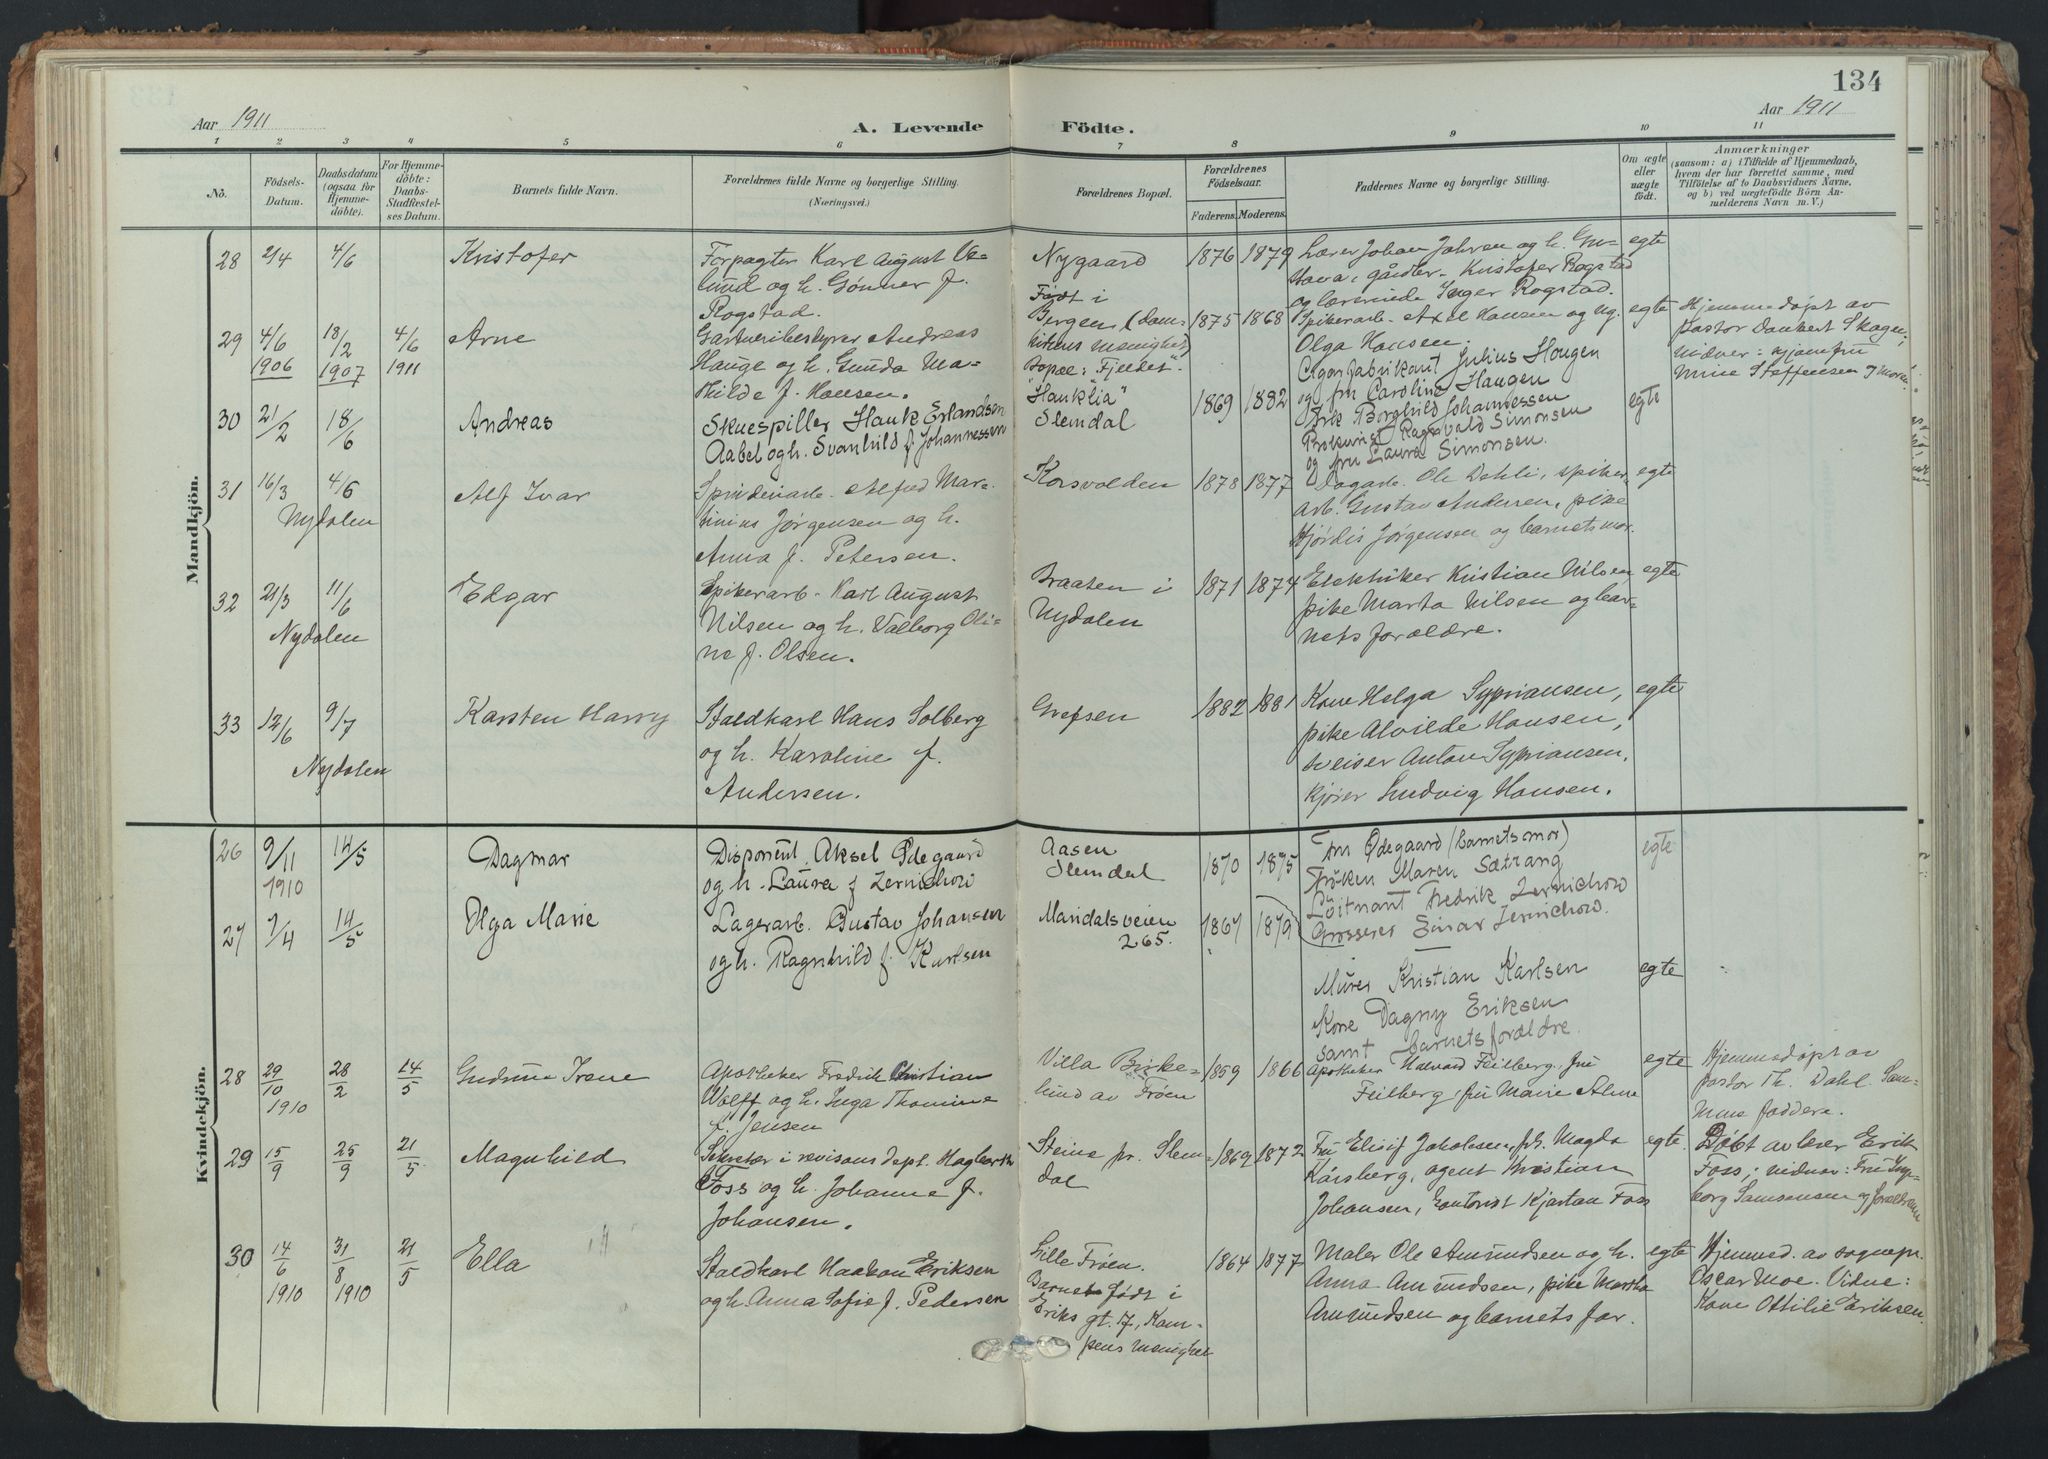 134
Aar 1911
A. Levende Födte.
Aar 1911
1 2 3 4 5 6 7 8 9 10 11
No.
Födsels-
Datum.
Daabsdatum
(ogsaa for
Hjemme-
döbte).
For Hjemme-
döbte:
Daabs-
Stadfæstel-
ses Datum.
Barnets fulde Navn.
Forældrenes fulde Navne og borgerlige Stilling.
(Næringsvei.)
Forældrenes Bopæl.
Forældrenes
Födselsaar.
Faderens. Moderens.
Faddernes Navne og borgerlige Stilling.
Om ægte
eller
uægte
födt.
Anmærkninger
(saasom: a) i Tilfælde af Hjemmedaab,
hvem der har forrettet samme, med
Tilföielse af to Daabsvidners Navne,
og b) ved uægtefödte Börn An-
melderens Navn m. V.)
Mandkjön.
28 2/4 4/6 Kristofer
Forpagter Karl August
og h. Gönner f.
Rogstad.
Nygaard
1876 1879
Lærer Johan Jahren og h. Gu-
stava, gårdbr. Kristofer Rogstad
og lærerinde Inger Rogstad.
egte
29 4/6 1906 18/2 1907 4/6 1911 Arne
Gartneribestyrer Andreas
Hauge og h. Gunda Ma-
thilde f. Hansen.
Født i
Bergen (Dom-
kirkens menighet)
Bopæl: "Fjeldet".
1875 1868
Spikerarb. Axel Hansen og
Olga Hansen.
Cigarfabrikant Julius Haugen
og fru Caroline Haugen
egte
Hjemmedøpt av
pastor Dankert Skagen;
vidner: jomfru
Mine Steffensen og moren
30 21/2 18/6 Andreas
Skuespiller Hauk Erlandsen
Aabel og h. Svanhild f. Johannessen
"Hauklia"
Slemdal
1869 1882
Frk Borghild Johannessen
Prokurist Ragnvald Simonsen
og fru Laura Simonsen.
egte
31 16/3 4/6 Alf Ivar
Nydalen
Spinderiarb. Alfred Mar-
tinius Jørgensen og h.
Anna f. Petersen.
Korsvolden
1878 1877
Dagarb. Ole Dehli, spiker-
arb. Gustav Andersen, pike
Hjørdis Jørgensen og barnets mor.
egte
32 21/3 11/6 Edgar
Nydalen
Spikerarb. Karl August
Nilsen og h. Valborg Oli-
ne f. Olsen.
Braaten i
Nydalen
1871 1874
Elektriker Kristian Nilsen
pike Marta Nilsen og bar-
nets forældre.
egte
33 12/6 9/7 Karsten Harry
Nydalen
Staldkarl Hans Solberg
og h. Karoline f.
Andersen.
Grefsen
1882 1881
Kone Helga Sypriansen,
pike Alvilde Hansen,
sveiser Anton Sypriansen,
kjører Ludvig Hansen.
egte
Kvindekjön.
26 9/11 1910 14/5 Dagmar
Disponent Aksel Ødegaard
og h. Laura f Zernichow
Aasen
Slemdal
1870 1875
Fru Ødegaard (barnets mor)
Frøken Maren Sætrang
Löitnant Fredrik Zernichow
Grosserer Einar Zernichow.
egte
27 7/4 14/5 Olga Marie
Lagerarb. Gustav Johansen
og h. Ragnhild f. Karlsen
Maridalsveien
265.
1867 1879
Murer Kristian Karlsen
Kone Dagny Eriksen
samt barnets forældre.
egte
28 29/10 1910 28/2 14/5 Gudrun Irene
Apotheker Fredrik Christian
Wolff og h. Inga Thomine
f. Jensen
Villa Birke-
lund av Frøen
1859 1866
Apotheker Halvard Feilberg. fru
Feilberg, fru Marie Alme
egte
Hjemmedøpt av
pastor Th. Dahl. Sam-
me faddere.
29 15/9 25/9 21/5 Magnhild
Sekretær i revisions dept. Hagbarth
Foss og h. Johanne f.
Johansen.
Steine pr. Slem-
dal
1869 1872
Fru Elisif Jakobsen, frk. Magda
Kårsberg, agent Kristian
Johansen, kontorist Kjartan Foss
egte
Døbt av lærer Erik
Foss; vidner: Fru Inge-
borg Samsonsen og forældrene
30 14/6 1910 31/8 1910 21/5 Ella
Staldkarl Haakon Eriksen
og h. Anna Sofie f. Pedersen
Lille Frøen.
Barnet født i
Eriks gt. 17, Kam-
pens menighet
1864 1877
Maler Ole Amundsen og h.
Anna Amundsen, pike Martha
Amundsen og barnets far.
egte
Hjemmed. av sognepr.
Oscar Moe. Vidne:
Kone Ottilie Eriksen.